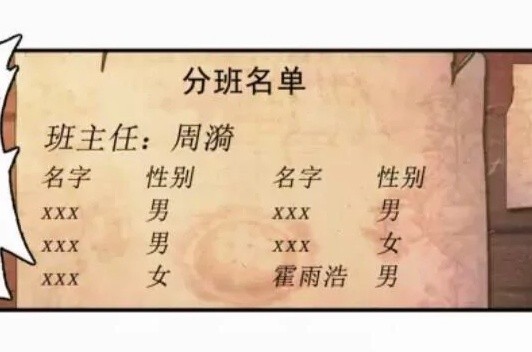 分班名单
班主任：周漪
名字 性别 名字 性别
xxx 男 xxx 男
xxx 男 xxx 女
xxx 女 霍雨浩 男